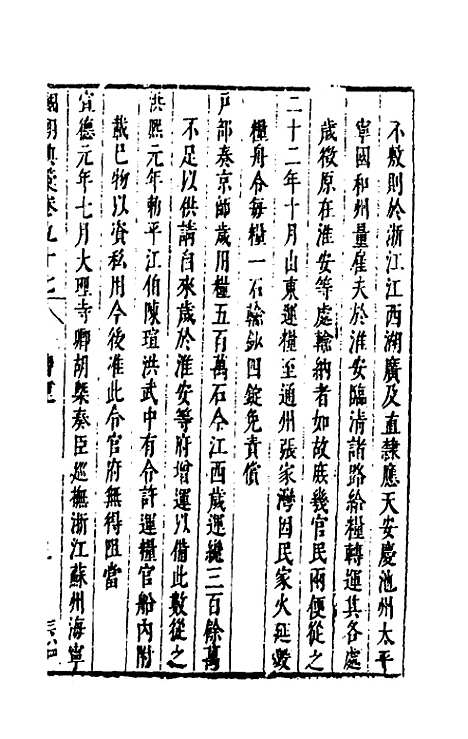 不敷則於浙江江西湖廣及直隸應天安慶池州太平
寧國和州量雇夫於淮安臨清諸路給糧轉運其各處
歲徵原在淮安等處輸納者如故庶幾官民兩便從之
二十二年十月山東運糧至通州張家灣因民家火延燬
糧舟令每糧一石輸鈔四錠免責償
戸部奏京師歲用糧五百萬石今江西歲運纔三百餘萬
不足以供請自來歲於淮安等府增運以備此數從之
洪熙元年勑平江伯陳瑄洪武中有令許運糧官船內附
載已物以資私用今後准此令官府無得阻當
宣德元年七月大理寺卿胡槩奏臣巡撫浙江蘇州海寧
國朝典彙卷九十七 漕運